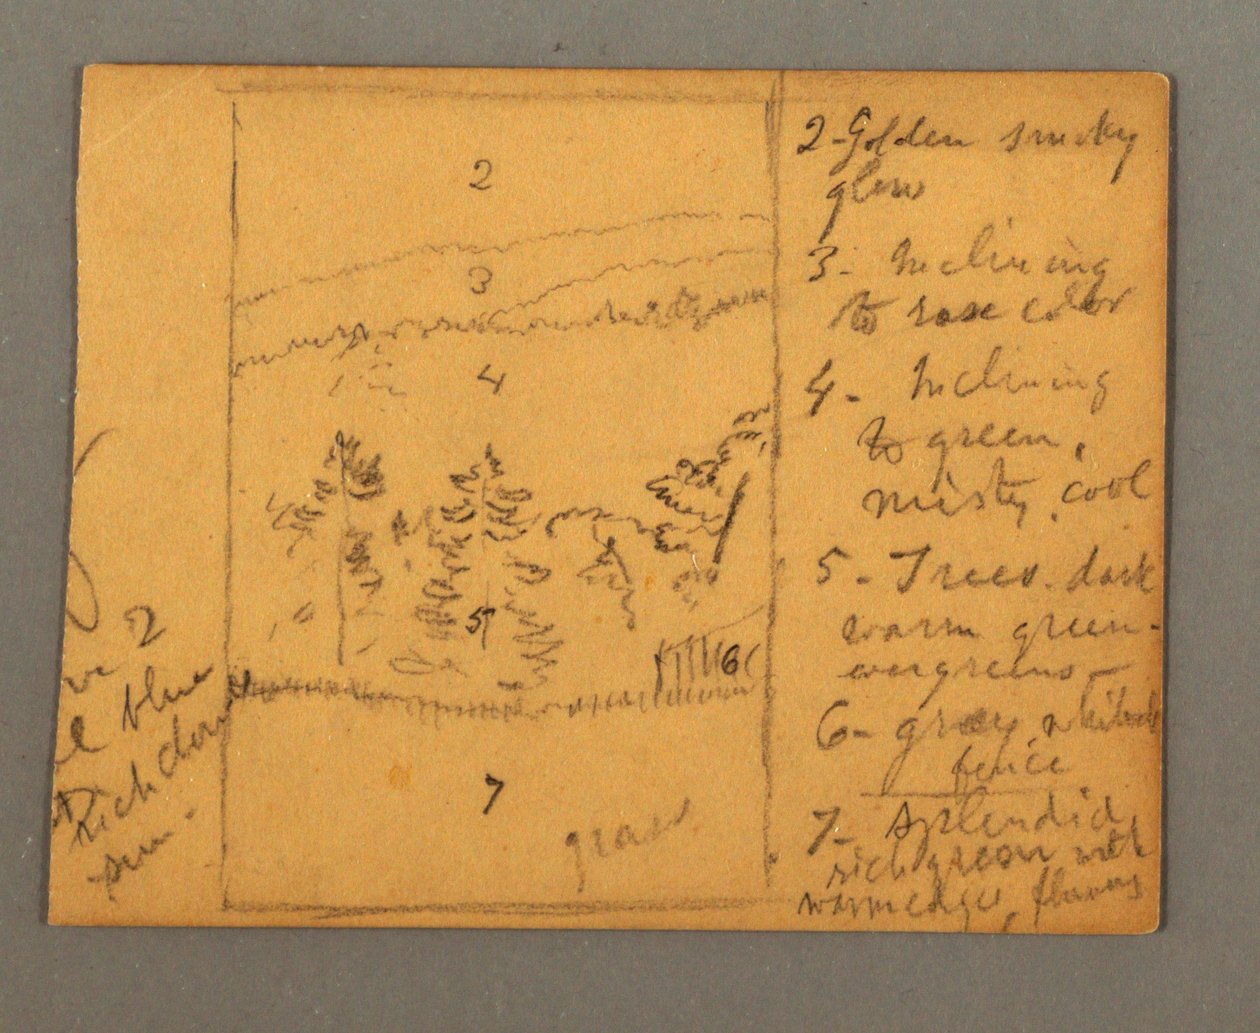 2
3
4
5
6
7
grass
2 - Golden smoky
glow
3 - Inclining
to rose color
4 - Inclining
to green,
misty, cool
5 - Trees - dark
warm green -
evergreens -
6 - gray
fence
7 - Splendid,
rich green with
warm edges, flowers
2
blue
Rich
sun.